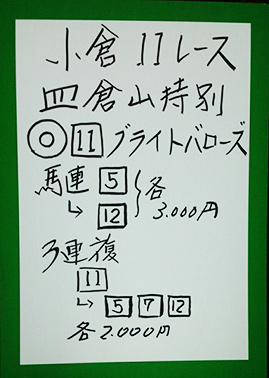 小倉 11レース
皿倉山特別
◎ 11 ブライトバローズ
馬連 5 } 各
↳ 12 3.000円
3連複
11
↳ 5 7 12
各2.000円